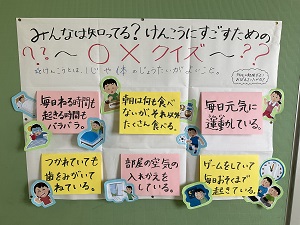 みんなは知ってる？けんこうにすごすための
？？〜〇×クイズ〜？？
☆けんこうとは、心や体のじょうたいがよいこと。
毎日ねる時間も
起きる時間も
バラバラ。
朝は何も食べ
ないが、それ以外
たくさん食べる。
毎日元気に
運動している。
つかれていても
歯をみがいて
ねている。
部屋の空気の
入れかえを
している。
ゲームをしていて
毎日おそくまで
起きている。